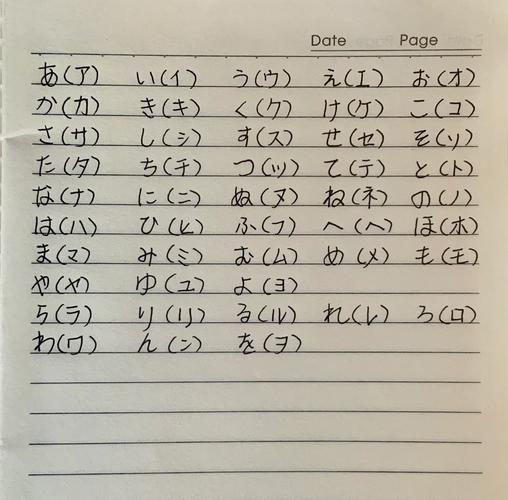 Date Page
あ(ア) い(イ) う(ウ) え(エ) お(オ)
か(カ) き(キ) く(ク) け(ケ) こ(コ)
さ(サ) し(シ) す(ス) せ(セ) そ(ソ)
た(タ) ち(チ) つ(ツ) て(テ) と(ト)
な(ナ) に(ニ) ぬ(ヌ) ね(ネ) の(ノ)
は(ハ) ひ(ヒ) ふ(フ) へ(ヘ) ほ(ホ)
ま(マ) み(ミ) む(ム) め(メ) も(モ)
や(ヤ) ゆ(ユ) よ(ヨ)
ら(ラ) り(リ) る(ル) れ(レ) ろ(ロ)
わ(ワ) ん(ン) を(ヲ)